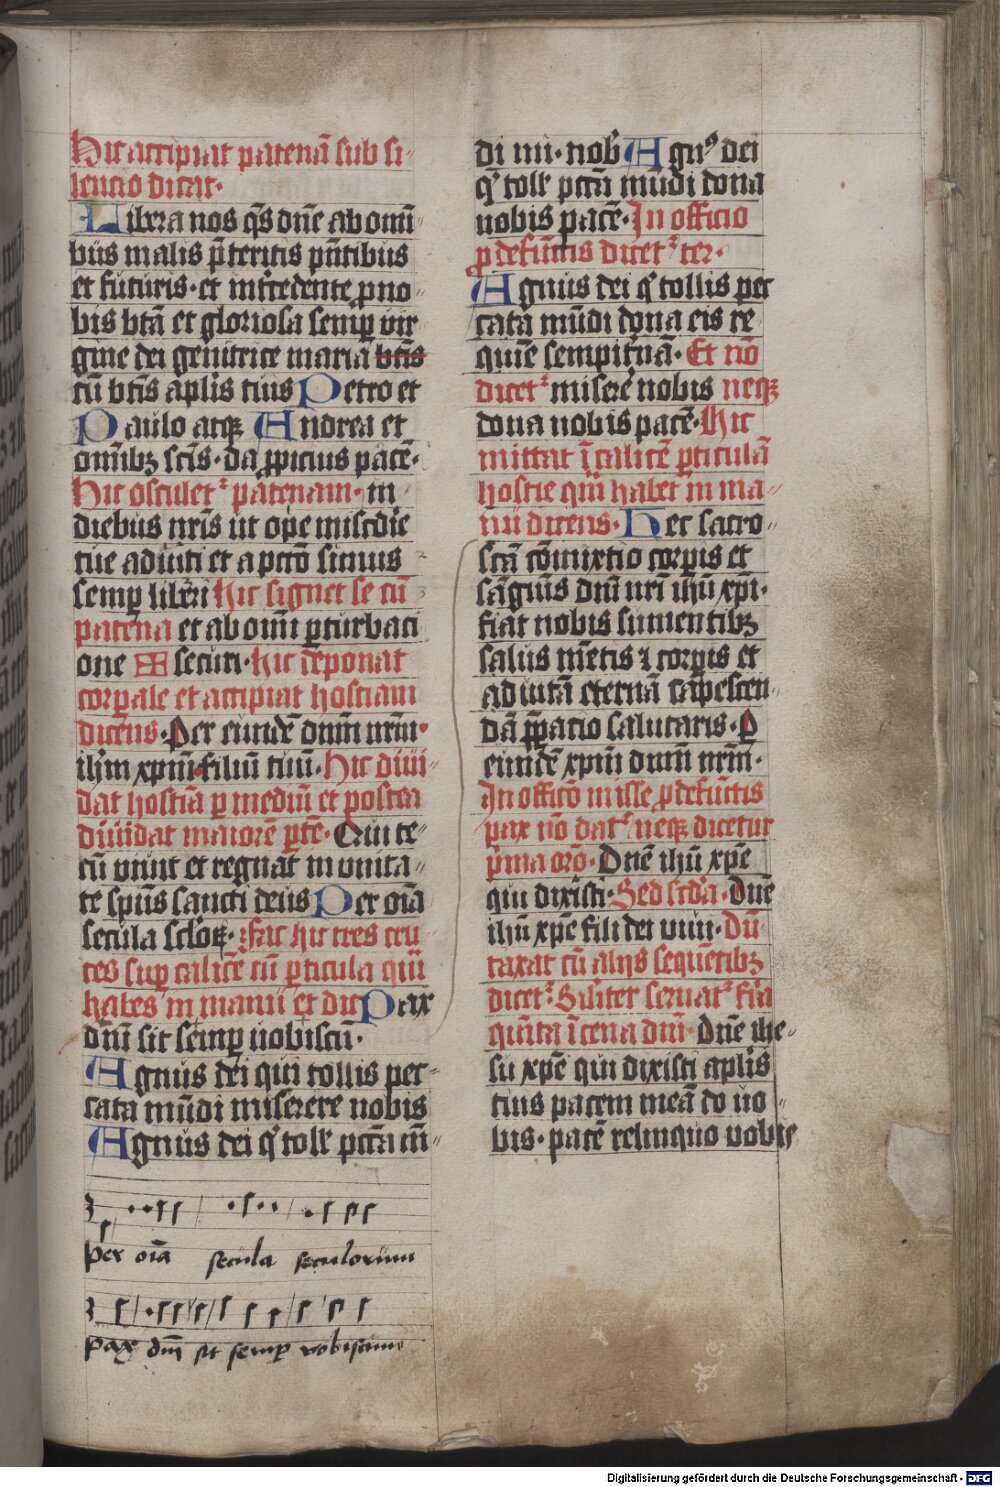 Hic accipiat patenā sub si-
lencio dicat·
Libera nos q̄s dn̄e ab omī-
bus malis p̄teritis pn̄tibus
et futuris· et int̄cedente pro no-
bis btā et gloriosa semꝑ vir
gine dei genitrice maria bt̄is
cū bt̄is apl̄is tuis Petro et
Paulo atqꝫ Andrea et
omībꝫ sc̄is· da ꝓpicius pacē·
Hic osculet᷑ patenam· in
diebus nr̄is ut ope misc̄die
tue adiuti et a pctō simus
semꝑ lib̄ri hic signet se cū
patena et ab omī ꝑturbaci
one ✠ securi· hic deponat
corꝑale et accipiat hostiam
dicens· Per eundē dnm̄ nrm̄·
ihm̄ xpm̄ filiū tuū· Hic diui-
dat hostiā ꝑ mediū et postea
diuidat maiorē ꝑtē· Qui te-
cū viuit et regnat in vnita-
te spūs sancti deus Per oīa
secula scl̄oꝝ· fac hic tres cru
ces suꝑ calicē cū ꝑticula quā
habes in manu et dic Pax
dn̄i sit semꝑ uobiscū·
Agnus dei qui tollis pec-
cata mūdi miserere nobis
Agnus dei q̇ toll̄ pctā mū-
Per oīa secula seculorum
Pax dn̄i sit semꝑ vobiscum
di mi· nob̄ Agnꝰ dei
q̇ toll̄ pctā mūdi dona
nobis pacē· In officio
ꝓ defūctis dicet᷑ ter·
Agnus dei q̇ tollis pec
cata mūdi dona eis re
quiē sempit̄nā· Et nō
dicet᷑ miserē nobis neqꝫ
dona nobis pacē· Hic
mittat ī calicē ꝑticulā
hostie quā habet in ma-
nū dicens· Hec sacro-
sc̄ā cōmixtio corꝑis et
sāguis dnī nrī ihū xpī·
fiat nobis sumentibꝫ
salus mētis ⁊ corꝑis et
ad uitā eternā capescen-
dā p̄ꝑatio salutaris· ꝑ
eundē xpm̄ dnm̄ nrm̄·
In officō misse ꝓ defūctis
pax nō dat᷑ neqꝫ dicetur
p̄ma orō· Dn̄e ihū xpē
qui dixisti· Sed scd̄a· Dn̄e
ihū xpē fili dei viui· Dū-
taxat cū alijs sequētibꝫ
dicet᷑ Silit̄er seruat᷑ fīa
quīta ī cena dnī· Dn̄e ihe-
su xpē qui dixisti apl̄is
tuis pacem meā do uo-
bis· pacē relinquo vobis
Digitalisierung gefördert durch die Deutsche Forschungsgemeinschaft - DFG